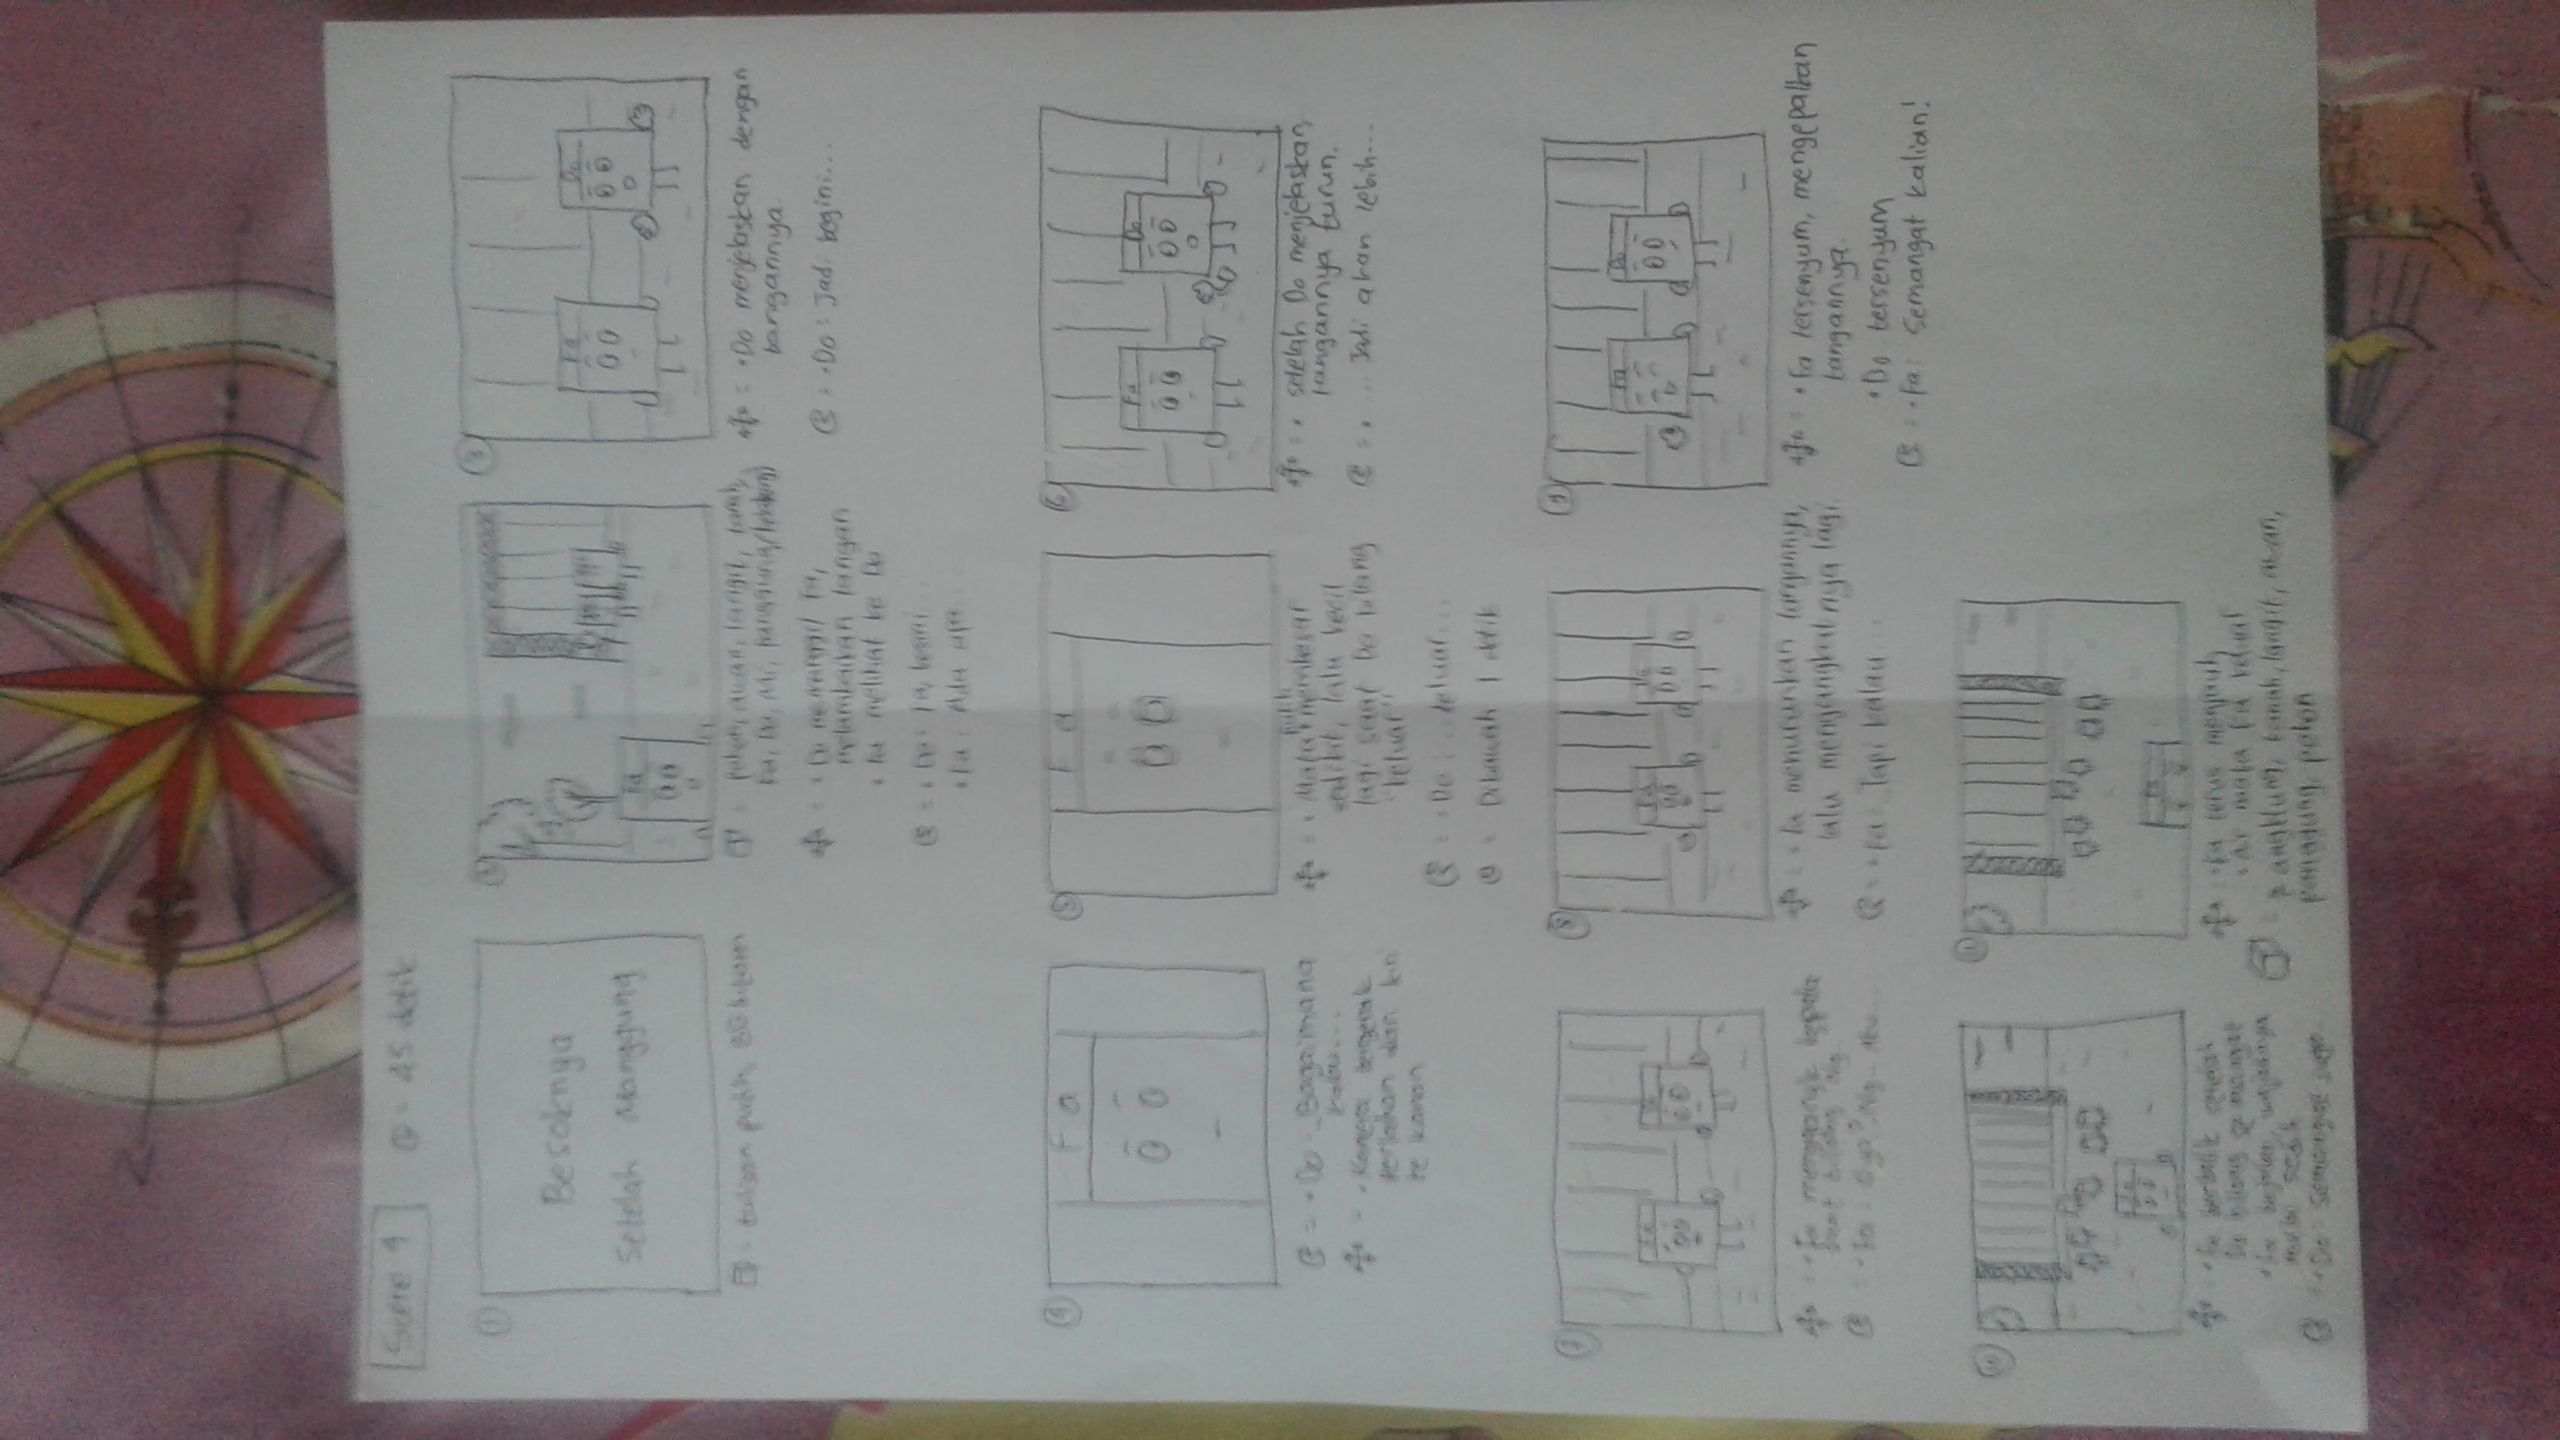 Scene 4
= 45 detik
1
Besoknya
Setelah Manggung
= tulisan putih, BG hitam
2
Fa
= pohon, awan, langit, tanah,
Fa, Do, Mi, panggung
= • Do memanggil Fa,
melambaikan tangan
• Fa melihat ke Do
= • Do: Fa, kesini...
• Fa: Ada apa...
3
Fa
Do
= • Do menjelaskan dengan
tangannya.
= • Do: Jadi begini...
4
Fa
= • Do: ...Bagaimana
kalau...
= • Kamera bergerak
perlahan dari kiri
ke kanan
5
Fa
putih
= • Mata membesar
sedikit, lalu kecil
lagi saat Do bilang
"keluar"
= • Do: ...keluar...
= Dibawah 1 detik
6
Fa
Do
= • setelah Do menjelaskan,
tangannya turun.
= • .... Jadi akan lebih...
7
Fa
Do
= • Fa kepala
saat bilang Ng..
= • Fa: O ya? Ng... Aku...
8
Fa
= • Fa menurunkan tangannya,
lalu mengangkatnya lagi.
= • Fa: ..Tapi kalau...
9
Fa
Do
= • Fa tersenyum, mengepalkan
tangannya.
• Do tersenyum
= • Fa: Semangat kalian!
10
Fa
= • Fa berbalik setelah
Do bilang semangat
• Fa berjalan, wajahnya
mulai sedih
= • Do: Semangat juga.
11
Fa
= • Fa terus menjauh
• Air mata Fa keluar
= angklung, tanah, langit, awan,
panggung, pohon